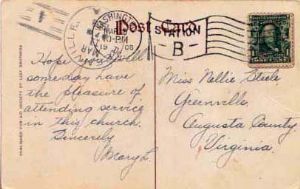 WASHINGTON
MAR
-PM
19
08
Post Card
STATION
B
Hope
someday have
the pleasure of
attending service
in this church.
Sincerely
Mary L.
Miss Nellie Steele
Greenville
Augusta County
Virginia.